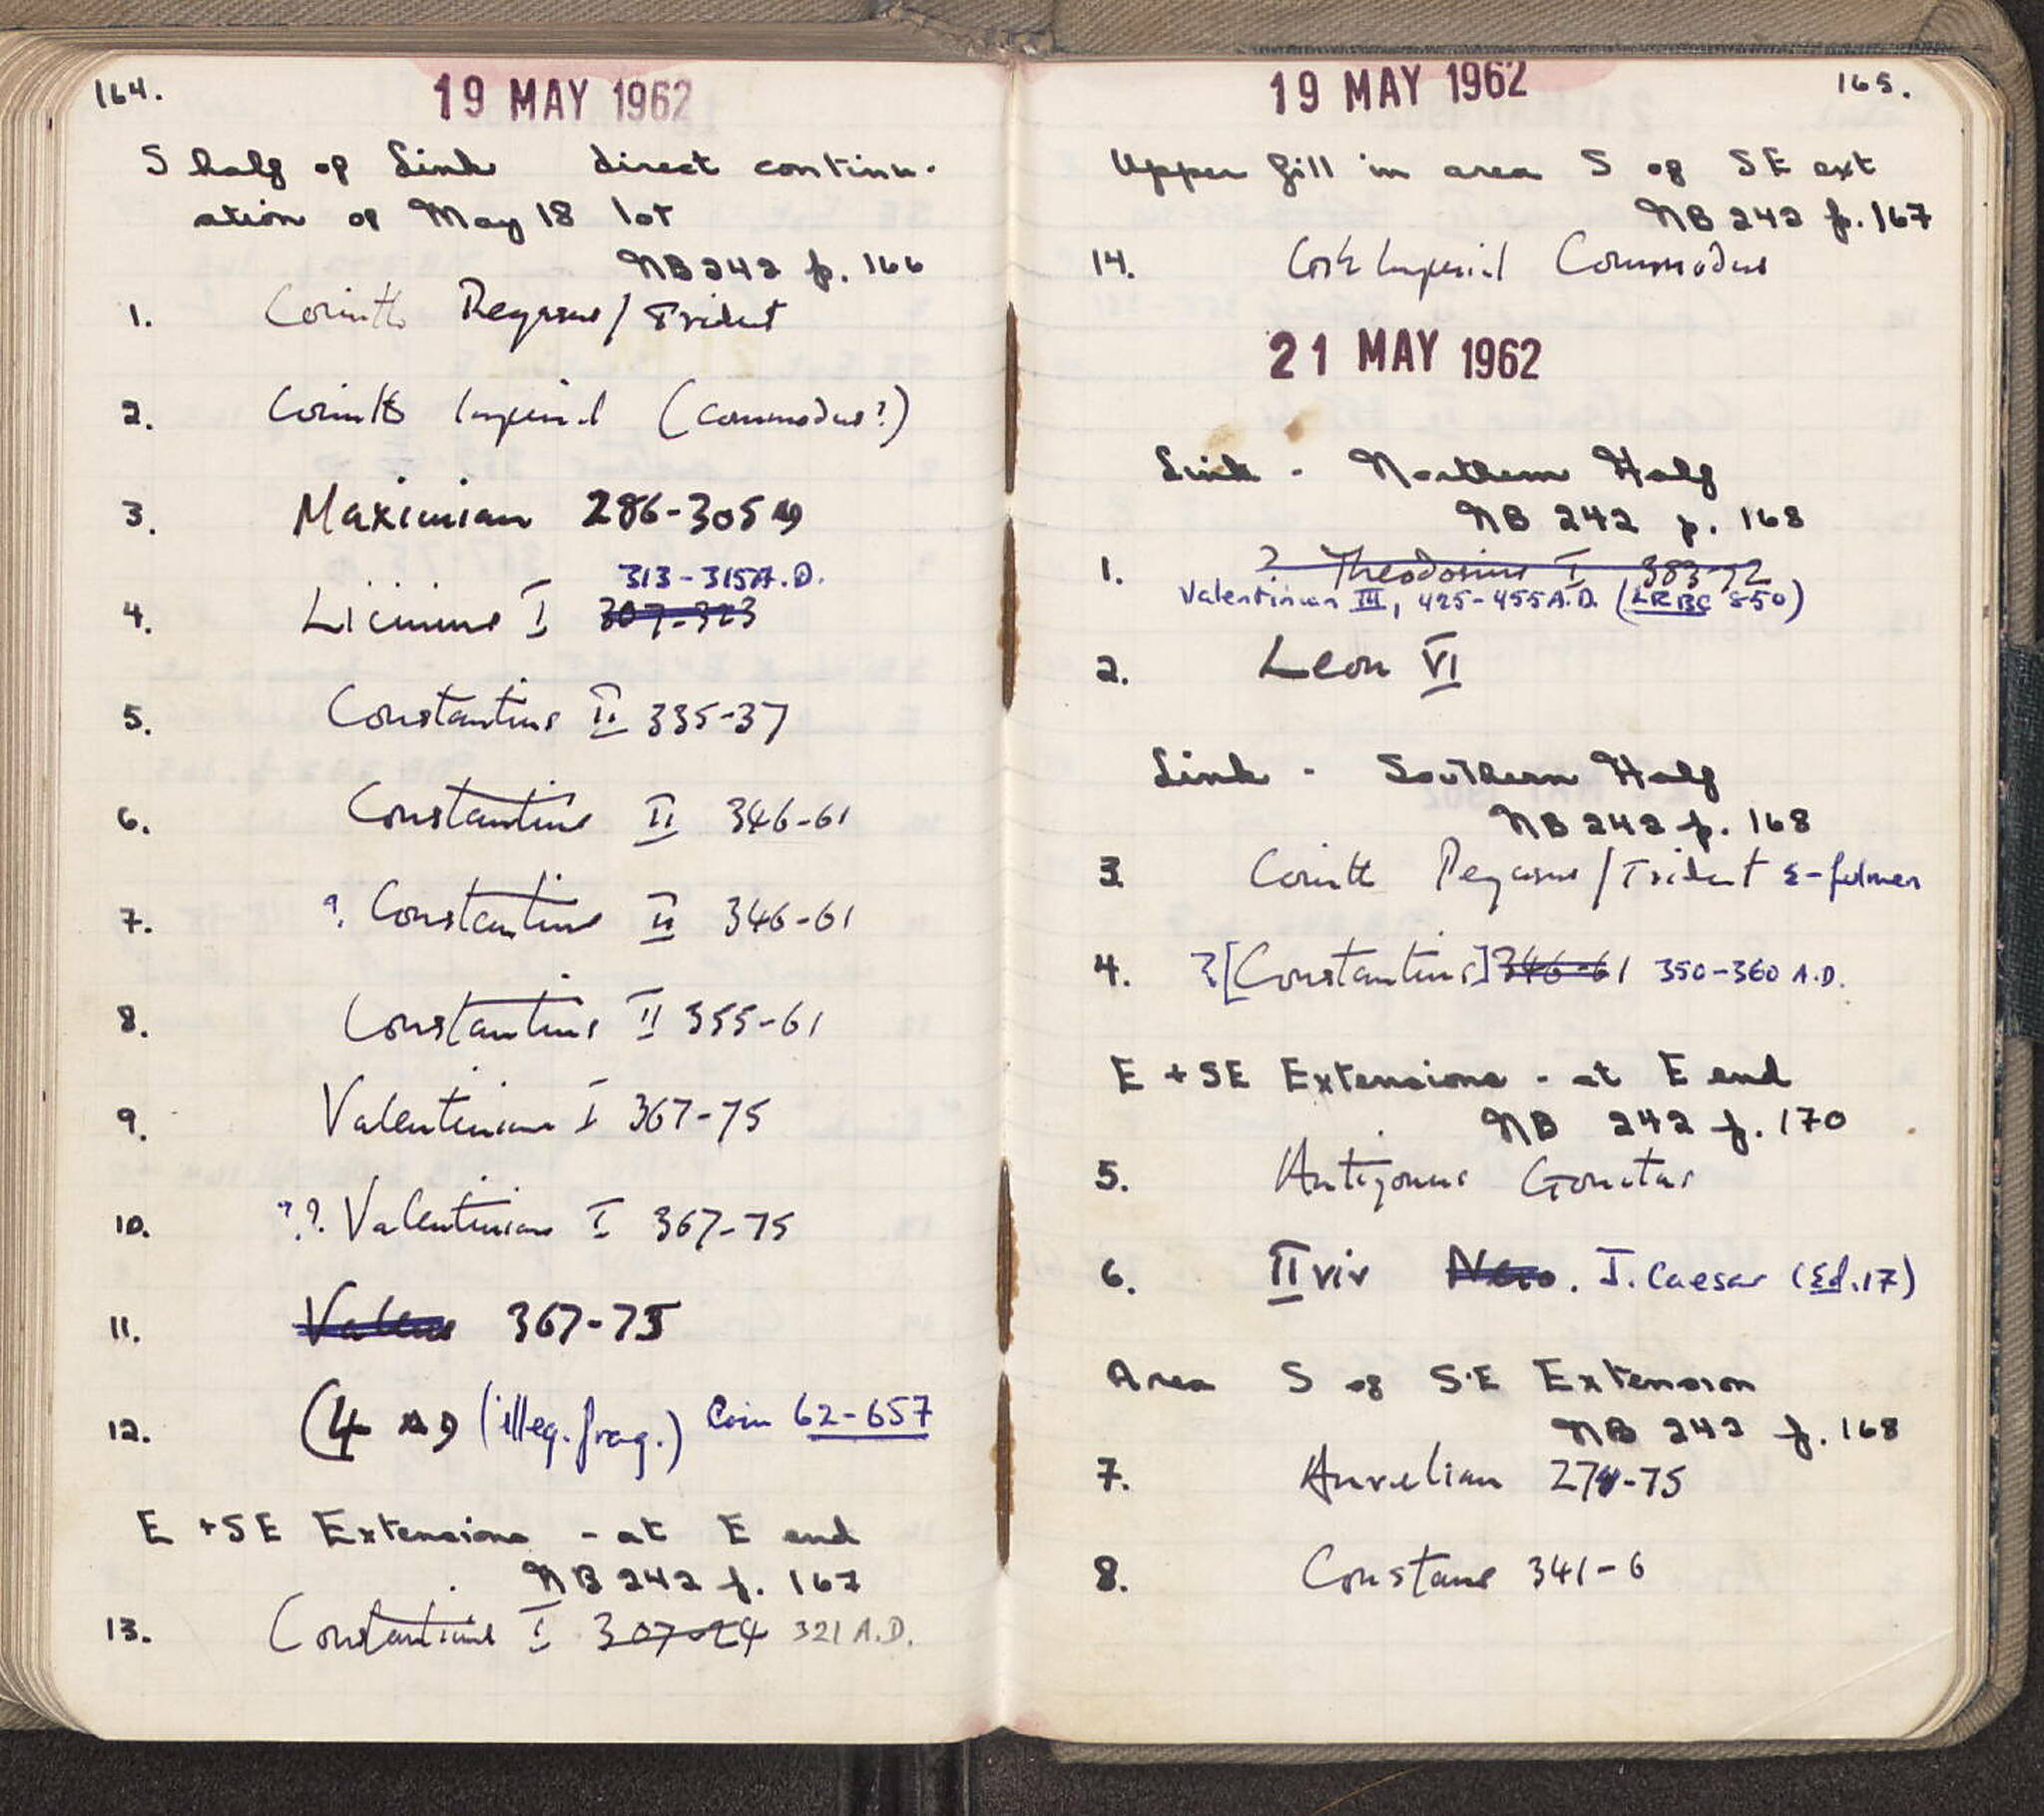 164.
19 MAY 1962
S half of Link direct continu-
ation of May 18 lot
NB 242 p. 166
1. Corinth Pegasus/Trident
2. Corinth Imperial (Commodus?)
3. Maximian 286-305
313-315A.D.
4. Licinius I 307-323
5. Constantius II 335-37
6. Constantius II 346-61
7. ? Constantius II 346-61
8. Constantius II 355-61
9. Valentinian I 367-75
10. ?? Valentinian I 367-75
11. Valens 367-75
12. (illeg. frag.) Coin 62-657
E + SE Extensions - at E end
NB 242 p. 167
13. Constantine I 307-24 321 A.D.
19 MAY 1962
165.
Upper fill in area S of SE ext
NB 242 p. 167
14. Imperial Commodus
21 MAY 1962
Link - Northern Half
NB 242 p. 168
1. ? Theodosius I 383-92
Valentinian III, 425-455 A.D. (LRBC 850)
2. Leon VI
Link - Southern Half
NB 242 p. 168
3. Corinth Pegasus/Trident Σ-fulmen
4. ?[Constantius] 346-61 350-360 A.D.
E + SE Extensions - at E end
NB 242 p. 170
5. Antigonus Gonatas
6. II vir Nero. J. Caesar (Ed. 17)
Area S of SE Extension
NB 242 p. 168
7. Aurelian 270-75
8. Constans 341-6